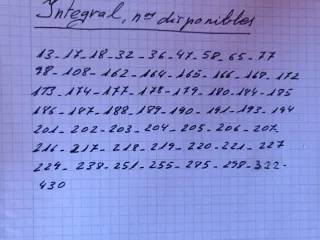 Integral, nos disponibles
13-17-18-32-36-47-58-65-77
98-108-162-164-165-166-168-172
173-174-177-178-179-180-184-185
186-187-188-189-190-191-193-194
201-202-203-204-205-206-207
216-217-218-219-220-221-227
229-238-251-255-285-298-322-
430